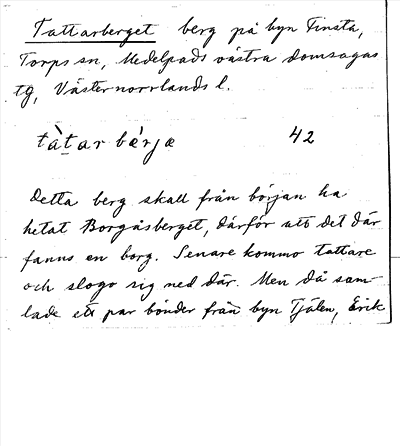 Tattarberget berg på byn Finsta,
Torps sn, Medelpads västra domsagas
tg, Västernorrlands l.
tàtar bærjæ 42
Detta berg skall från början ha
hetat Borgåsberget, därför att det där
fanns en borg. Senare kommo tattare
och slogo sig ned där. Men då sam-
lade ett par bönder från byn Tjälen, Erik